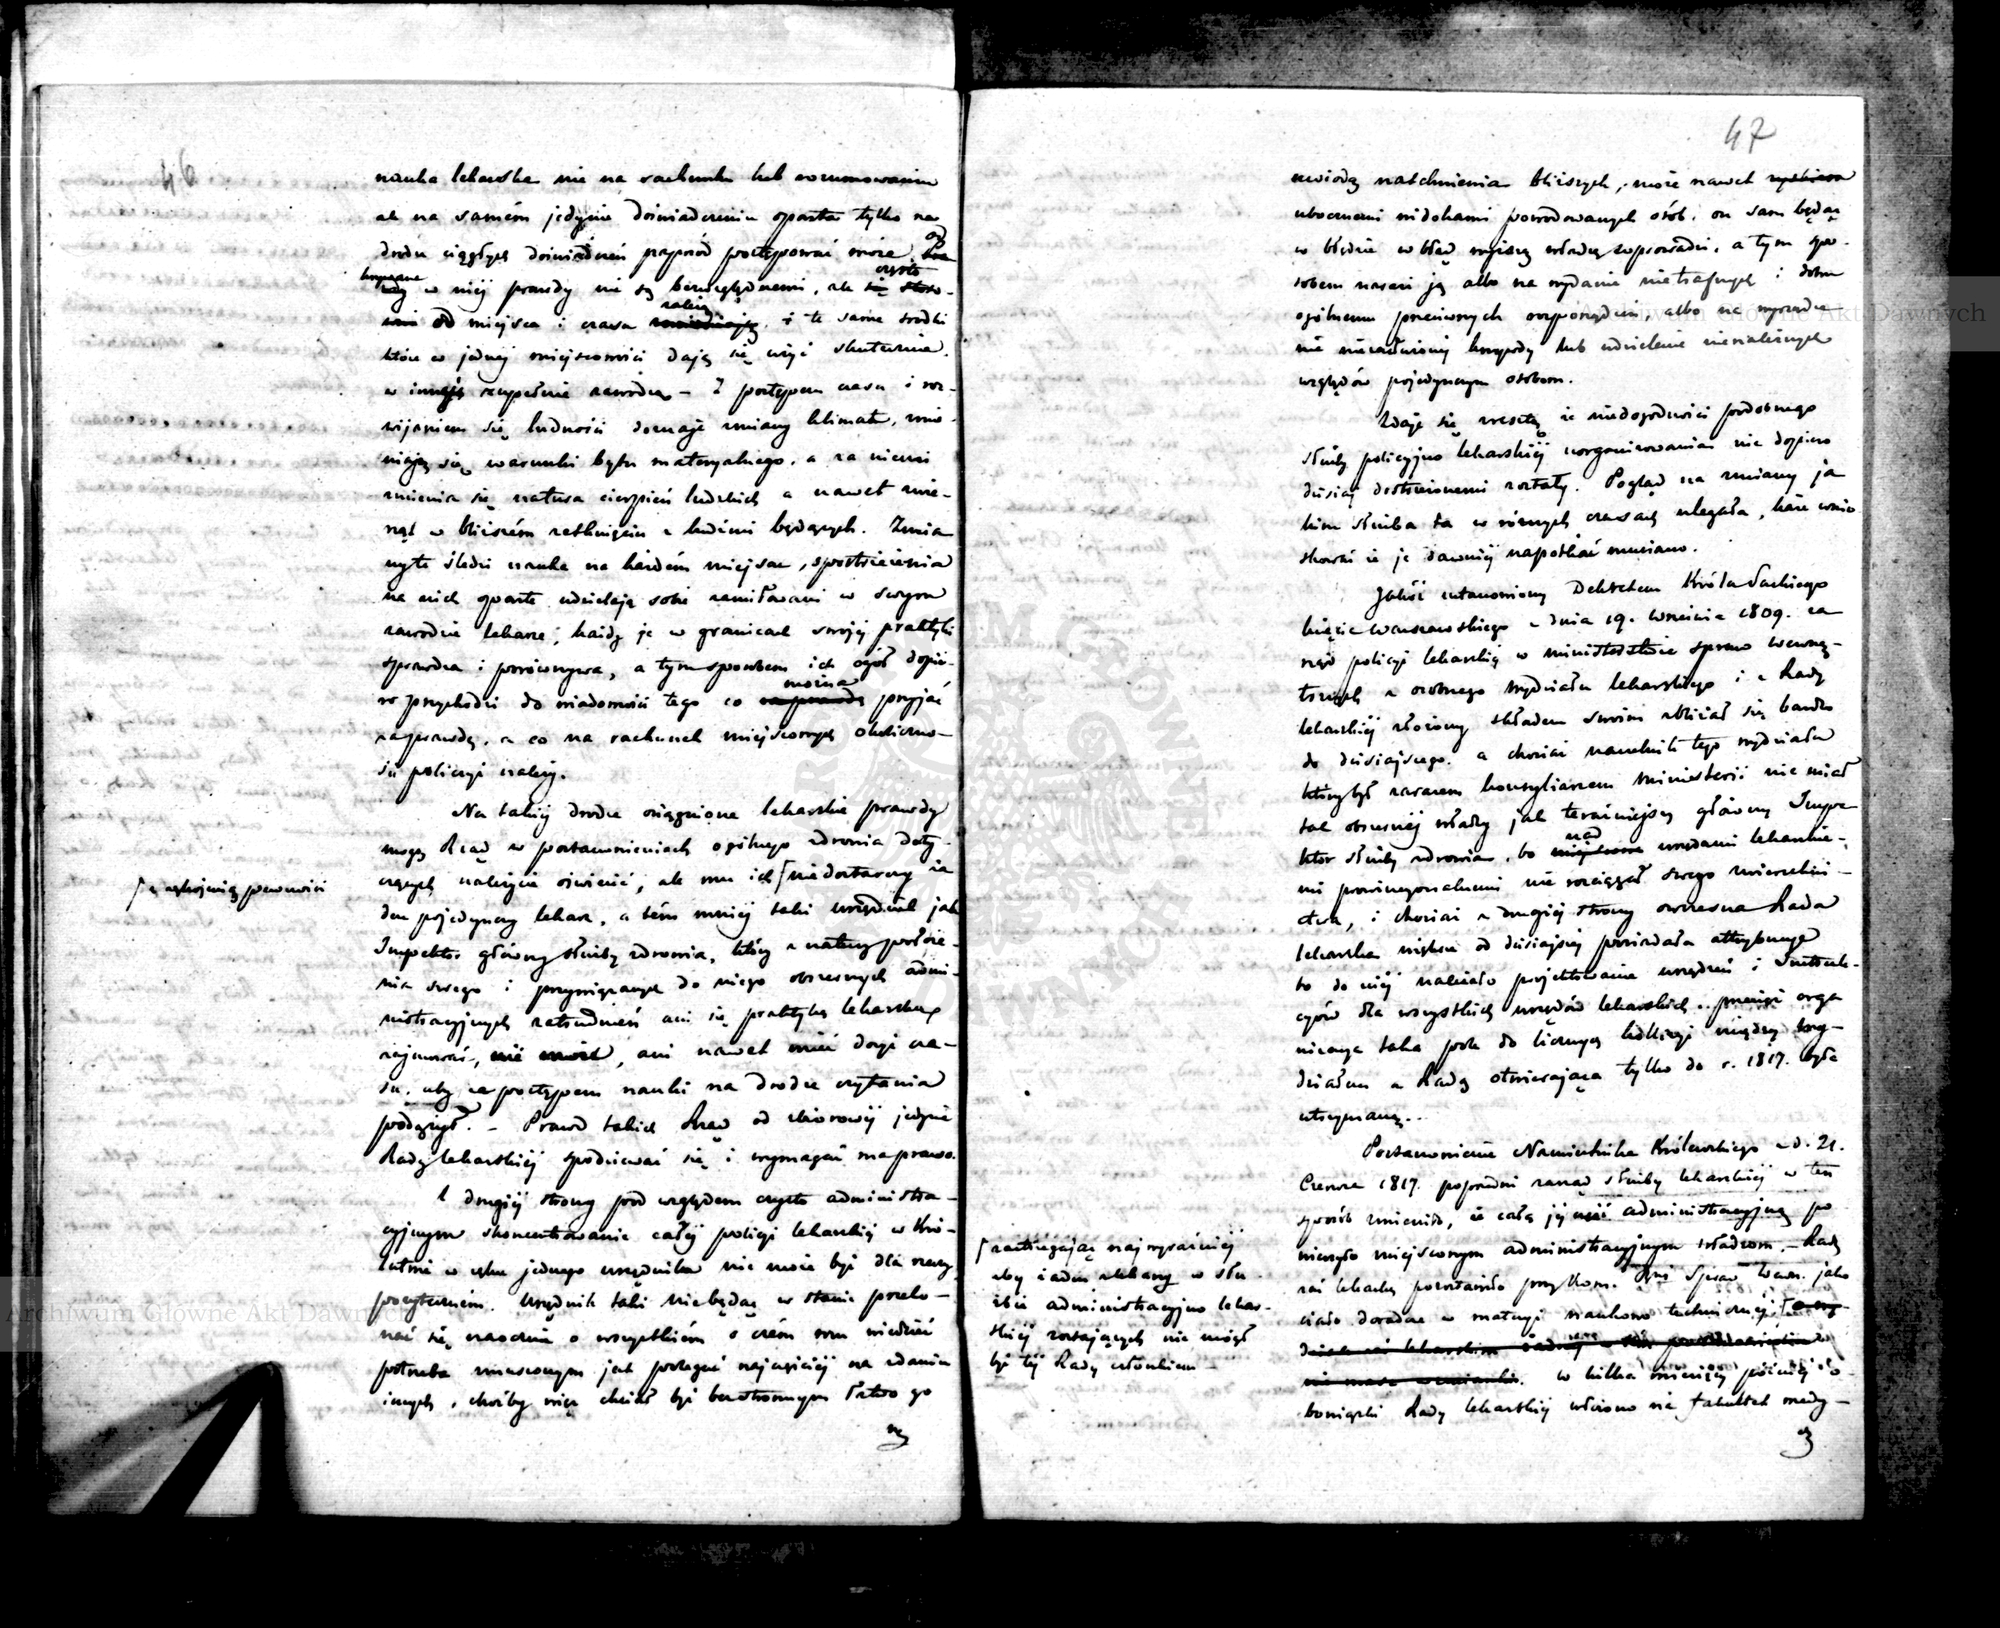 46
nauka lekarska nie na rachunku lub rozumowaniu
ale na samém jedynie doświadczeniu oparta tylko na
drodze ciągłych doświadczeń naprzód postępować może.
w niéj prawdy nie są bezwzględnemi, ale czysto
od miejsca i czasu zależą i te same środki
które w jednéj miejscowości dają się użyć skutecznie,
w innéj zupełnie zawodzą – Z postępem czasu i roz-
wijaniem się ludności doznaje zmiany klimat, zmie-
niają się warunki bytu materyalnego, a za niemi
zmienia się natura cierpień ludzkich a nawet zwie-
rząt w bliższém zetknięciu z ludźmi będących. Zmia
ny te śledzi nauka na każdém miejscu, spostrzeżenia
na nich oparte udzielają sobie zamiłowani w swym
zawodzie lekarze, każdy je w granicach swojéj praktyki
sprawdza i porównywa, a tym sposobem ich ogół dopie-
ro przychodzi do wiadomości tego co można przyjąć
za prawdę, a co na rachunek miejscowych okoliczno-
ści policzyć należy.
Na takiéj drodze osiągnione lekarskie prawdy
mogą Rząd w postanowieniach ogólnego zdrowia doty-
czących należycie oświecić, ale mu ich niedostarczy ża
⌈z rękojmią pewności
den pojedynczy lekarz, a tém mniéj taki urzędnik jak
Inspektor główny służby zdrowia, który z natury położe-
nia swego i przywiązanych do niego obszernych admi-
nistracyjnych zatrudnień ani się praktyką lekarską
zajmować, nie może, ani nawet mieć dosyć cza-
su, aby za postępem nauki na drodze czytania
podążył. – Prawd takich Rząd od zbiorowéj jedynie
Rady lekarskiéj spodziewać się i wymagać ma prawo.
Z drugiéj strony pod względem czysto administra-
cyjnym skoncentrowanie całéj policyi lekarskiéj w Kró-
lestwie w ręku jednego urzędnika nie może być dla rzeczy
pożyteczném. Urzędnik taki niebędąc w stanie przeko-
nać się naocznie o wszystkiém o czém mu wiedzieć
potrzeba zmuszonym jest polegać najczęściéj na zdaniu
innych, choćby więc chciał być bezstronnym łatwo go
47
uwiodą natchnienia bliższych, może nawet
ubocznemi widokami powodowanych osób. on sam będąc
w błędzie w błąd wyższą władzę wprowadzi, a tym spo-
sobem narazi ją albo na wydanie nietrafnych i dobru
ogólnemu przeciwnych rozporządzeń, albo na wyrządze
nie niezasłużonéj krzywdy lub udzielenie nienależnych
względów pojedynczym osobom.
Zdaje się zresztą że niedogodności podobnego
służby policyjno lekarskiéj uorganizowania nie dopiero
dzisiaj dostrzeżonemi zostały. Pogląd na zmiany ja
kim służba ta w różnych czasach ulegała, każe wnio
skować że je dawniéj napotkać musiano.
Jakoż ustanowiony Dekretem Króla Saskiego
Księcia Warszawskiego z dnia 19. Września 1809. za
rząd policyi lekarskiéj w Ministerstwie spraw wewnę-
trznych z osobnego wydziału lekarskiego i z Rady
lekarskiéj złożony składem swoim zbliżał się bardzo
do dzisiejszego. a chociaż naczelnik tego wydziału
który był zarazem konsyliarzem Ministerii nie miał
tak obszernéj władzy jak teraźniejszy główny Inspe
ktor służby zdrowia, bo nad urzędami lekarskie-
mi prowincyonalnemi nie rozciągał swego zwierzchni-
ctwa, i chociaż z drugiéj strony ówczesna Rada
lekarska większe od dzisiejszéj posiadała attrybucye
bo do niéj należało projektowanie urządzeń i Instruk-
cyów dla wszystkich urzędów lekarskich, przecież orga
nizacya taka pole do licznych kollizyi między wy-
działem a Radą otwierająca tylko do r. 1817. była
utrzymaną.
Postanowienie Namiestnika Królewskiego z d. 21.
Czerwca 1817. poprzedni zarząd służby lekarskiéj w ten
sposób zmieniło, że całą jéj część administracyjną po
wierzyło miejscowym administracyjnym władzom, – Radę
zaś lekarską pozostawiło przy Kom. Rząd. Spraw Wewn. jako
ciało doradcze w materyi naukowo technicznéj,
⌈zastrzegając najwyraźniéj
aby żaden z lekarzy w słu
żbie administracyjno lekar-
skiéj zostających nie mógł
być téj Rady członkiem –
w kilka miesięcy późniéj
bowiązki Rady lekarskiéj włożono na fakultet medy-